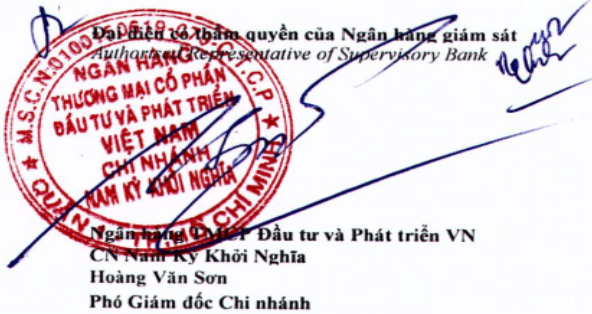 Đại diện có thẩm quyền của Ngân hàng giám sát
Authorised Representative of Supervisory Bank
M.S.C.N:0100
C.T.C.P
NGÂN HÀNG
THƯƠNG MẠI CỔ PHẦN
ĐẦU TƯ VÀ PHÁT TRIỂN
VIỆT NAM
CHI NHÁNH
NAM KỲ KHỞI NGHĨA
QUẬN 1 - TP. HỒ CHÍ MINH
Ngân hàng TMCP Đầu tư và Phát triển VN
CN Nam Kỳ Khởi Nghĩa
Hoàng Văn Sơn
Phó Giám đốc Chi nhánh